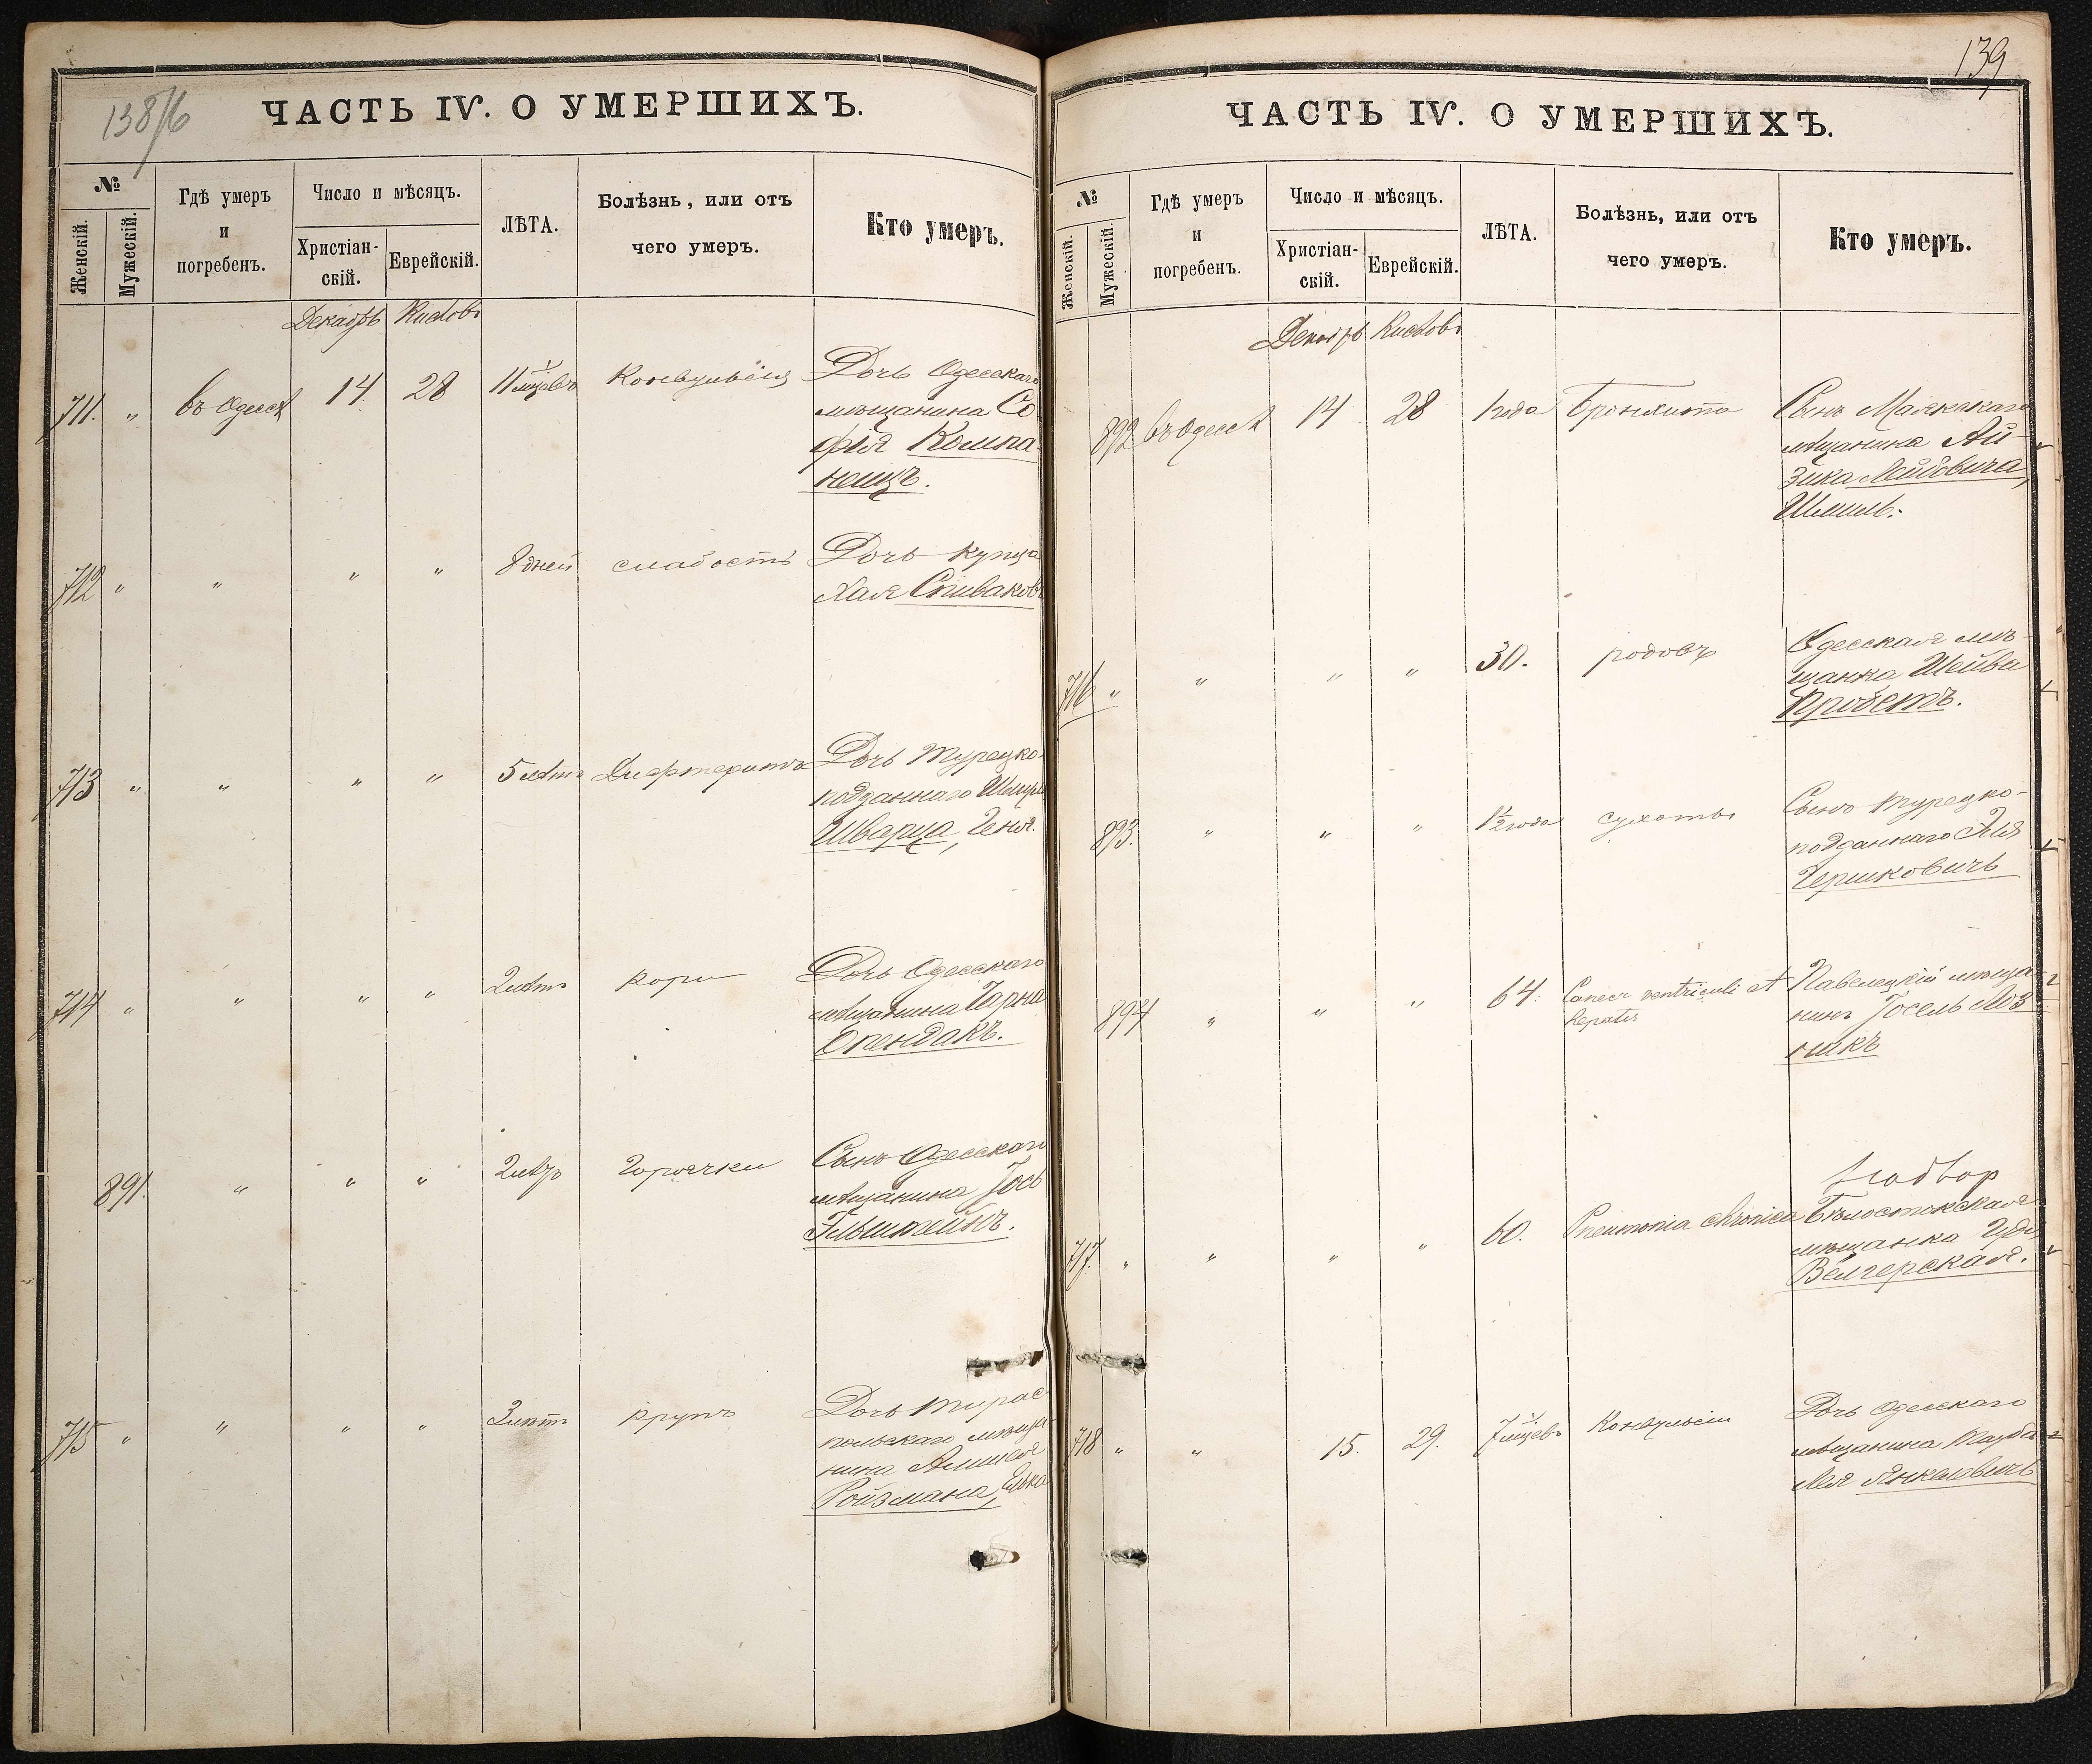 138/б
ЧАСТЬ IV. О УМЕРШИХЪ.
№
Женскій.
Мужескій.
Гдѣ умеръ
и
погребенъ.
Число и мѣсяцъ.
Христіан-
скій.
Еврейскій.
ЛѢТА.
Болѣзнь, или отъ
чего умеръ.
Кто умеръ.
Декабрь Кислевъ
711. " въ Одессѣ 14. 28 11 мцевъ Конвульсія Дочь Одесскаго
мѣщанина Со-
фія Компа-
неицъ.
712 " " " " 8 дней слабость Дочь купца
Хая Спиваковъ
713 " " " " 5 лѣтъ Дифтеритъ Дочь Турецко-
подданнаго
Шварца, Геня.
714 " " " " 2 лѣтъ кори Дочь Одесскаго
мѣщанина Чарна
Спендакъ.
891. " " " 2 лѣтъ Горячки Сынъ Одесскаго
мѣщанина Іось
715 " " " " 3 лѣтъ крупъ Дочь Тирас-
польскаго мѣща-
нина
Ройзмана, Элька
139
ЧАСТЬ IV. О УМЕРШИХЪ.
№
Женскій.
Мужескій.
Гдѣ умеръ
и
погребенъ.
Число и мѣсяцъ.
Христіан-
скій.
Еврейскій.
ЛѢТА.
Болѣзнь, или отъ
чего умеръ.
Кто умеръ.
Декабрь Кислевъ
892 въ Одессѣ 14 28 1 года Бронхита Сынъ Маякскаго
мѣщанина Ай-
зика Лейбовича,
Шмиль.
716 " " " " 30. родовъ Одесская мѣ-
щанка Шейва
Пробстъ.
893. " " " 1½ года сухоты Сынъ турецко-
подданнаго Илія
Гершковичъ
894 " " " 64. Cancer ventriculi et Павелецкій мѣща-
hepatis нинъ Іосель Лоз-
никъ
717. " " " " 60. Pneumonia chronica Бѣлостокская
мѣщанка Гудя
Венгерская.
718 " " 15. 29. 7 мцевъ Конвульсіи Дочь Одесскаго
мѣщанина Тауба
Лея Янкелевичъ